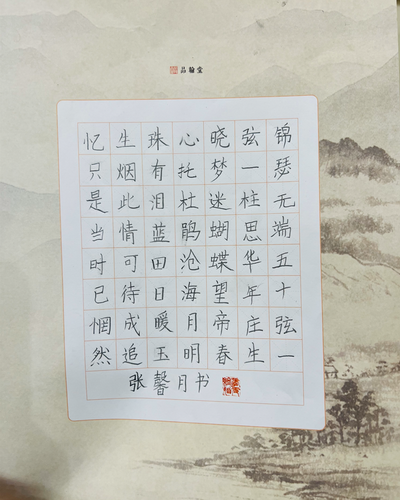 品翰堂
锦瑟无端五十弦一
弦一柱思华年庄生
晓梦迷蝴蝶望帝春
心托杜鹃沧海月明
珠有泪蓝田日暖玉
生烟此情可待成追
忆只是当时已惘然
张馨月书